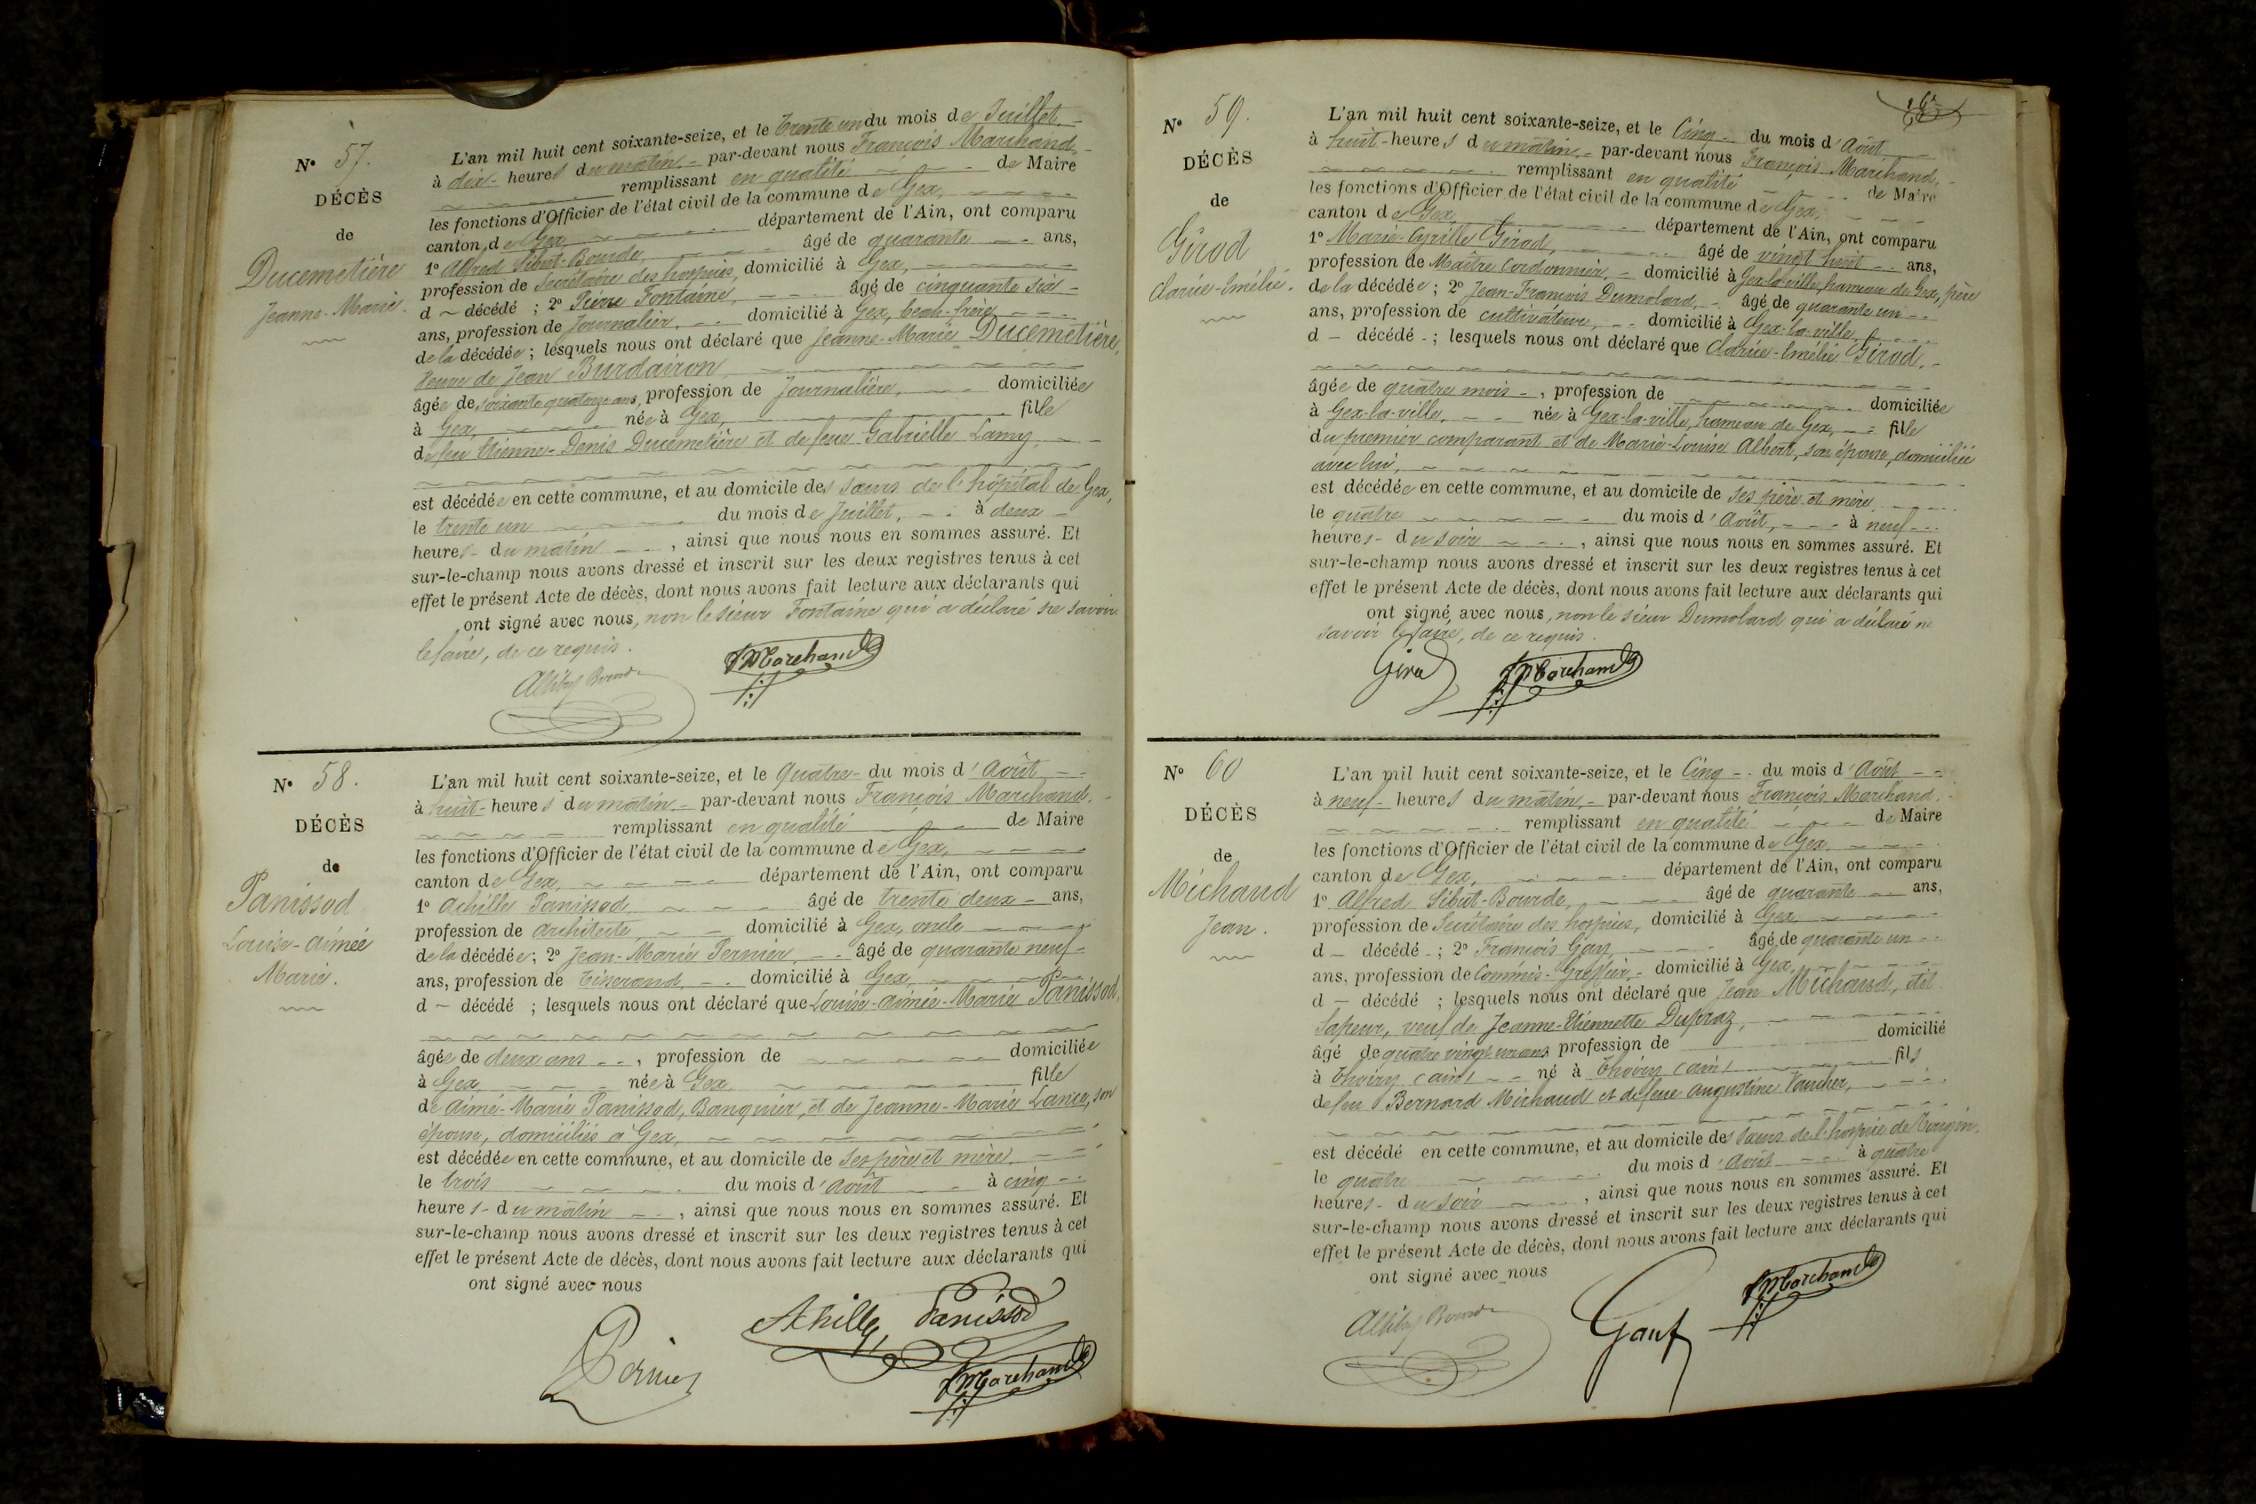 N° 57.
DÉCÈS
de
Ducemetière
Jeanne-Marie.
L'an mil huit cent soixante-seize, et le Trente un du mois de Juillet
à dix heures du matin par-devant nous François Marchand,
remplissant en qualité de Maire
les fonctions d'Officier de l'état civil de la commune de Gex,
canton de Gex département de l'Ain, ont comparu
1° Alfred Sibut-Bourde, âgé de quarante ans,
profession de Secrétaire des hospices, domicilié à Gex,
d décédé ; 2° Pierre Fontaine, âgé de cinquante six
ans, profession de Journalier, domicilié à Gex, beau-frère
de la décédée ; lesquels nous ont déclaré que Jeanne-Marie Ducemetière,
Veuve de Jean Burdairon
âgée de soixante quatorze ans, profession de Journalière, domiciliée
à Gex, née à Gex, fille
de feu Etienne-Denis Ducemetière et de feue Gabrielle Lamy
est décédée en cette commune, et au domicile des sœurs de l'hôpital de Gex,
le trente un du mois de Juillet, à deux
heures du matin, ainsi que nous nous en sommes assuré. Et
sur-le-champ nous avons dressé et inscrit sur les deux registres tenus à cet
effet le présent Acte de décès, dont nous avons fait lecture aux déclarants qui
ont signé avec nous, non le sieur Fontaine qui a déclaré ne savoir
le faire, de ce requis.
F Marchand
N° 58.
DÉCÈS
de
Panissod
Louise-Aimée
Marie.
L'an mil huit cent soixante-seize, et le Quatre du mois d'Août
à huit heures du matin par-devant nous François Marchand,
remplissant en qualité de Maire
les fonctions d'Officier de l'état civil de la commune de Gex,
canton de Gex, département de l'Ain, ont comparu
1° Achille Panissod âgé de trente deux ans,
profession de Architecte domicilié à Gex, oncle
de la décédée ; 2° Jean-Marie Pernier, âgé de quarante neuf
ans, profession de Tisserand, domicilié à Gex,
d décédé ; lesquels nous ont déclaré que Louise-Aimée-Marie Panissod,
âgée de deux ans, profession de domiciliée
à Gex née à Gex fille
de Aimé-Marie Panissod, Banquier, et de Jeanne-Marie Lance, son
épouse, domiciliés à Gex,
est décédée en cette commune, et au domicile de ses père et mère
le trois du mois d'Août à cinq
heures du matin, ainsi que nous nous en sommes assuré. Et
sur-le-champ nous avons dressé et inscrit sur les deux registres tenus à cet
effet le présent Acte de décès, dont nous avons fait lecture aux déclarants qui
ont signé avec nous
Achille Panissod
Pernier
F Marchand
N° 59.
DÉCÈS
de
Girod
Clarice-Emélie.
L'an mil huit cent soixante-seize, et le Cinq du mois d'Août
à huit heures du matin par-devant nous François Marchand,
remplissant en qualité de Maire
les fonctions d'Officier de l'état civil de la commune de Gex,
canton de Gex département de l'Ain, ont comparu
1° Marie-Cyrille Girod, âgé de vingt huit ans,
profession de Maître cordonnier, domicilié à Gex-la-ville, hameau de Gex, père
de la décédée ; 2° Jean-François Dumolard, âgé de quarante un
ans, profession de cultivateur, domicilié à Gex-la-ville,
d décédé ; lesquels nous ont déclaré que Clarice-Emélie Girod,
âgée de quatre mois, profession de domiciliée
à Gex-la-ville, née à Gex-la-ville, hameau de Gex, fille
du premier comparant et de Marie-Louise Albert, son épouse, domiciliée
avec lui,
est décédée en cette commune, et au domicile de ses père et mère
le quatre du mois d'Août, à neuf
heures du soir, ainsi que nous nous en sommes assuré. Et
sur-le-champ nous avons dressé et inscrit sur les deux registres tenus à cet
effet le présent Acte de décès, dont nous avons fait lecture aux déclarants qui
ont signé avec nous, non le sieur Dumolard qui a déclaré ne
savoir le faire, de ce requis.
Girod
F Marchand
N° 60
DÉCÈS
de
Michaud
Jean.
L'an mil huit cent soixante-seize, et le Cinq du mois d'Août
à neuf heures du matin, par-devant nous François Marchand,
remplissant en qualité de Maire
les fonctions d'Officier de l'état civil de la commune de Gex
canton de Gex, département de l'Ain, ont comparu
1° Alfred Sibut-Bourde, âgé de quarante ans,
profession de Secrétaire des hospices, domicilié à Gex
d décédé ; 2° François Gauf âgé de quarante un
ans, profession de Commis-Greffier, domicilié à Gex
d décédé ; lesquels nous ont déclaré que Jean Michaud, dit
Sapeur, veuf de Jeanne-Etiennette Dupraz,
âgé de quatre vingt un ans profession de domicilié
à Thoiry (Ain) né à Thoiry (Ain) fils
de feu Bernard Michaud et de feue Augustine Vaucher,
est décédé en cette commune, et au domicile des sœurs de l'hospice de Tougin
le quatre du mois d'Août à quatre
heures du soir, ainsi que nous nous en sommes assuré. Et
sur-le-champ nous avons dressé et inscrit sur les deux registres tenus à cet
effet le présent Acte de décès, dont nous avons fait lecture aux déclarants qui
ont signé avec nous
F Marchand
Gauf